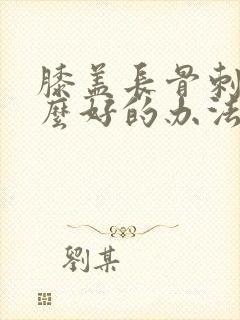 膝盖長骨刺
麽好的办法
劉某